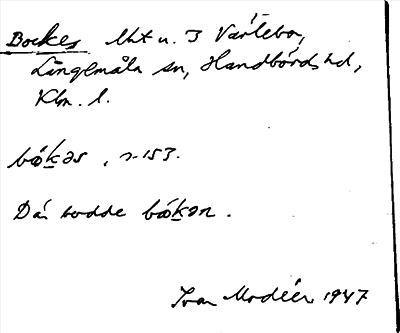 Bockes lht u. 3 Värlebo,
Långemåla sn, Handbörds hd,
Klm. l.
bo̤ḵəs, s. 153.
Där bodde bo̤ḵən.
Ivar Modéer 1947